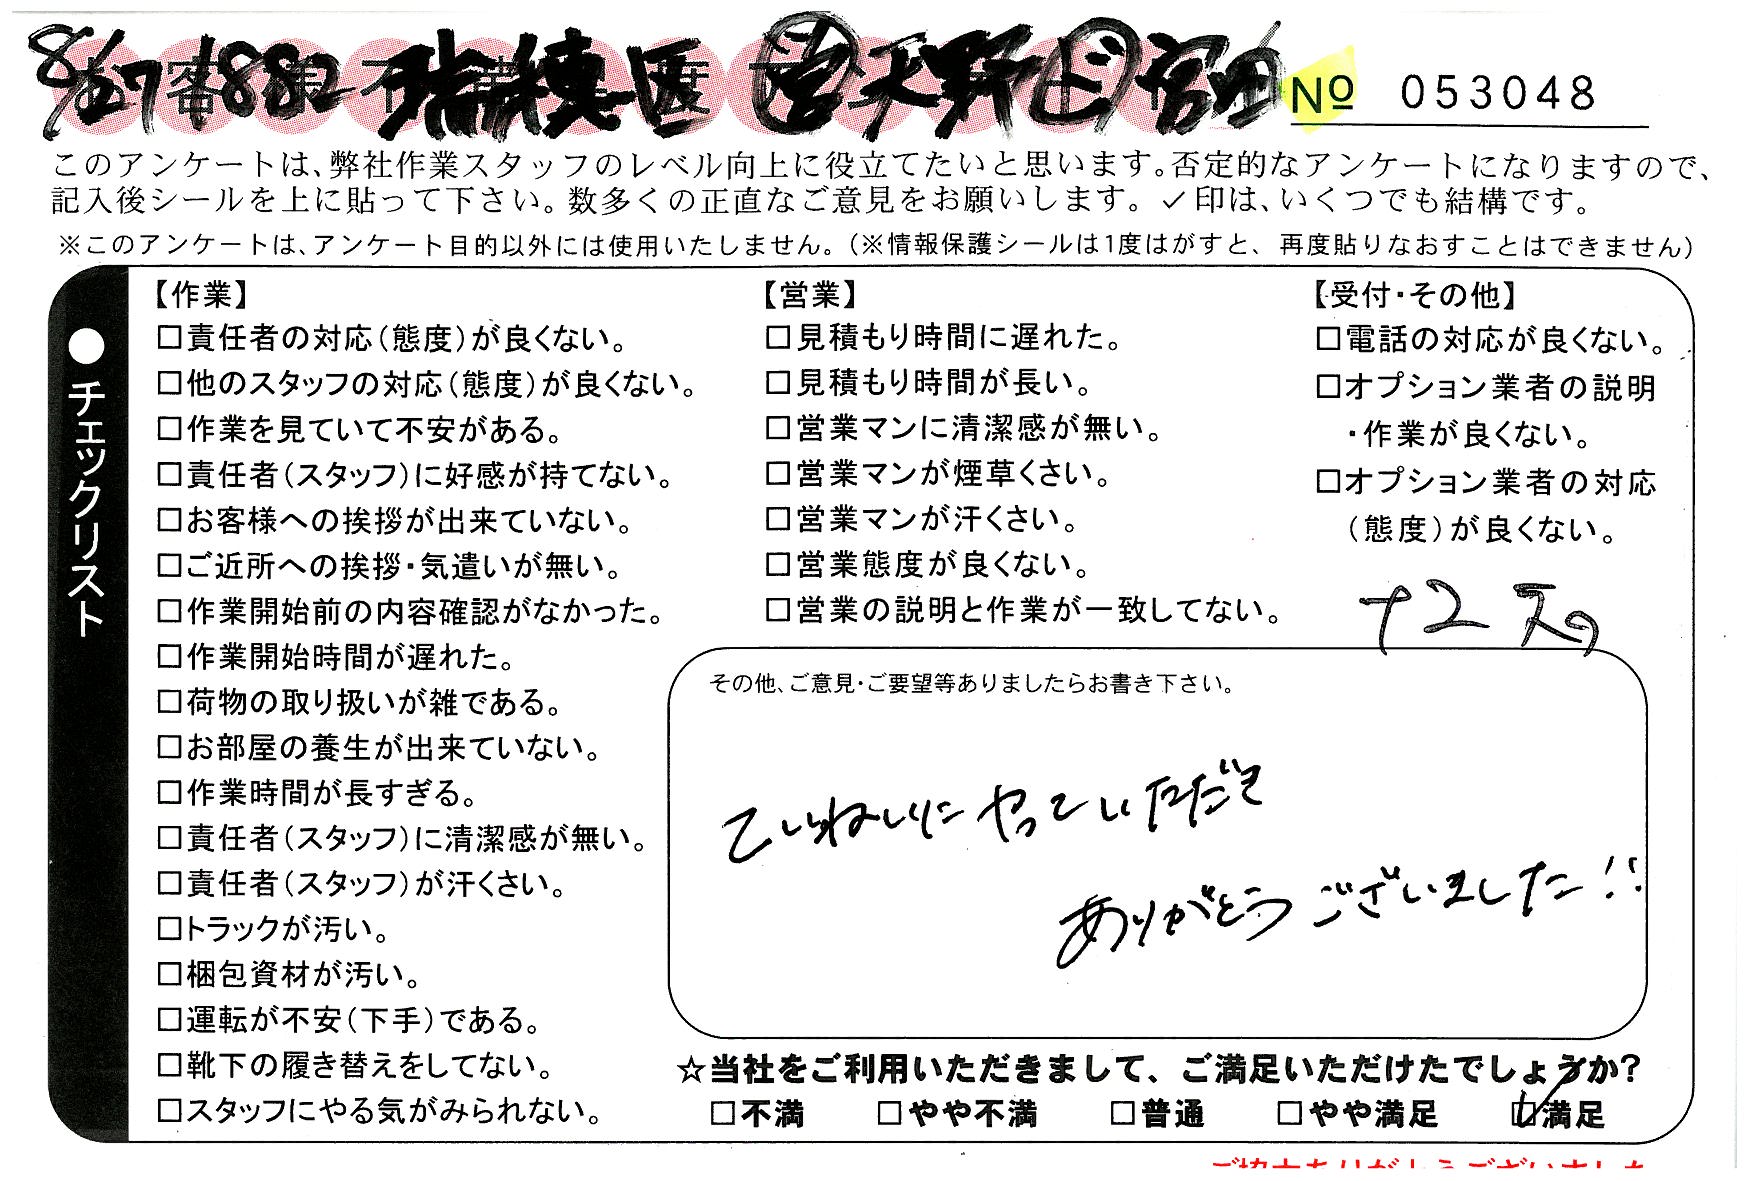 8/27 1882 瑞穂区 営天野 ビ宮田 № 053048
このアンケートは、弊社作業スタッフのレベル向上に役立てたいと思います。否定的なアンケートになりますので、
記入後シールを上に貼って下さい。数多くの正直なご意見をお願いします。✓印は、いくつでも結構です。
※このアンケートは、アンケート目的以外には使用いたしません。(※情報保護シールは1度はがすと、再度貼りなおすことはできません)
●チェックリスト
【作業】
□責任者の対応(態度)が良くない。
□他のスタッフの対応(態度)が良くない。
□作業を見ていて不安がある。
□責任者(スタッフ)に好感が持てない。
□お客様への挨拶が出来ていない。
□ご近所への挨拶・気遣いが無い。
□作業開始前の内容確認がなかった。
□作業開始時間が遅れた。
□荷物の取り扱いが雑である。
□お部屋の養生が出来ていない。
□作業時間が長すぎる。
□責任者(スタッフ)に清潔感が無い。
□責任者(スタッフ)が汗くさい。
□トラックが汚い。
□梱包資材が汚い。
□運転が不安(下手)である。
□靴下の履き替えをしてない。
□スタッフにやる気がみられない。
【営業】
□見積もり時間に遅れた。
□見積もり時間が長い。
□営業マンに清潔感が無い。
□営業マンが煙草くさい。
□営業マンが汗くさい。
□営業態度が良くない。
□営業の説明と作業が一致してない。
【受付・その他】
□電話の対応が良くない。
□オプション業者の説明
・作業が良くない。
□オプション業者の対応
(態度)が良くない。
+2
その他、ご意見・ご要望等ありましたらお書き下さい。
ていねいにやっていただき
ありがとうございました!!
☆当社をご利用いただきまして、ご満足いただけたでしょうか?
□不満 □やや不満 □普通 □やや満足 ☑満足
ご協力ありがとうございました